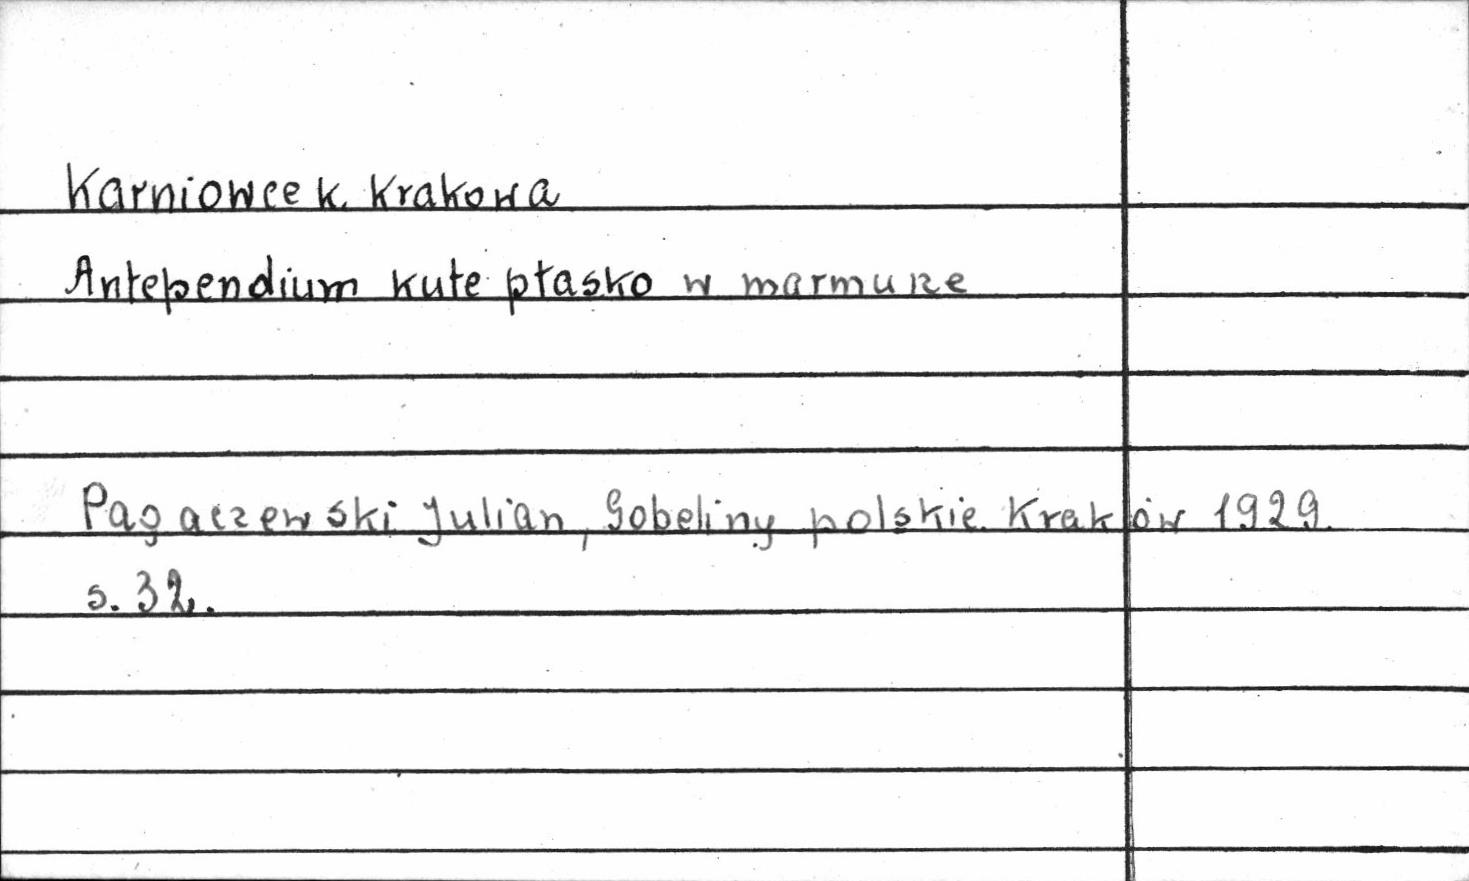 Karniowce k. Krakowa
Antependium kute płasko w marmurze
Pagaczewski Julian, Gobeliny polskie. Kraków 1929.
s. 32.